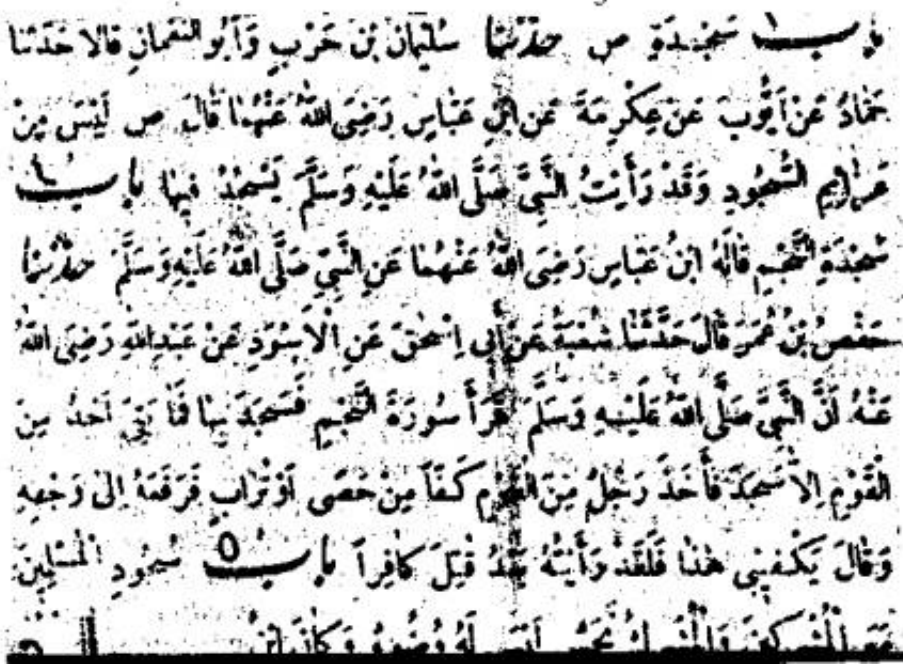 باب سَجْدَةِ ص حدثنا سُلَيْمَانُ بْنُ حَرْبٍ وَأَبُو النُّعْمَانِ قَالَا حَدَّثَنَا
حَمَّادٌ عَنْ أَيُّوبَ عَنْ عِكْرِمَةَ عَنِ ابْنِ عَبَّاسٍ رَضِيَ اللَّهُ عَنْهُمَا قَالَ ص لَيْسَ مِنْ
عَزَائِمِ السُّجُودِ وَقَدْ رَأَيْتُ النَّبِيَّ صَلَّى اللَّهُ عَلَيْهِ وَسَلَّمَ يَسْجُدُ فِيهَا باب
سَجْدَةِ النَّجْمِ قَالَهُ ابْنُ عَبَّاسٍ رَضِيَ اللَّهُ عَنْهُمَا عَنِ النَّبِيِّ صَلَّى اللَّهُ عَلَيْهِ وَسَلَّمَ حدثنا
حَفْصُ بْنُ عُمَرَ قَالَ حَدَّثَنَا شُعْبَةُ عَنْ أَبِي إِسْحٰقَ عَنِ الْأَسْوَدِ عَنْ عَبْدِ اللَّهِ رَضِيَ اللَّهُ
عَنْهُ أَنَّ النَّبِيَّ صَلَّى اللَّهُ عَلَيْهِ وَسَلَّمَ قَرَأَ سُورَةَ النَّجْمِ فَسَجَدَ بِهَا فَمَا بَقِيَ أَحَدٌ مِنَ
الْقَوْمِ إِلَّا سَجَدَ فَأَخَذَ رَجُلٌ مِنَ الْقَوْمِ كَفًّا مِنْ حَصًى أَوْ تُرَابٍ فَرَفَعَهُ إِلَى وَجْهِهِ
وَقَالَ يَكْفِينِي هٰذَا فَلَقَدْ رَأَيْتُهُ بَعْدُ قُتِلَ كَافِرًا باب ٥ سُجُودِ الْمُسْلِمِينَ